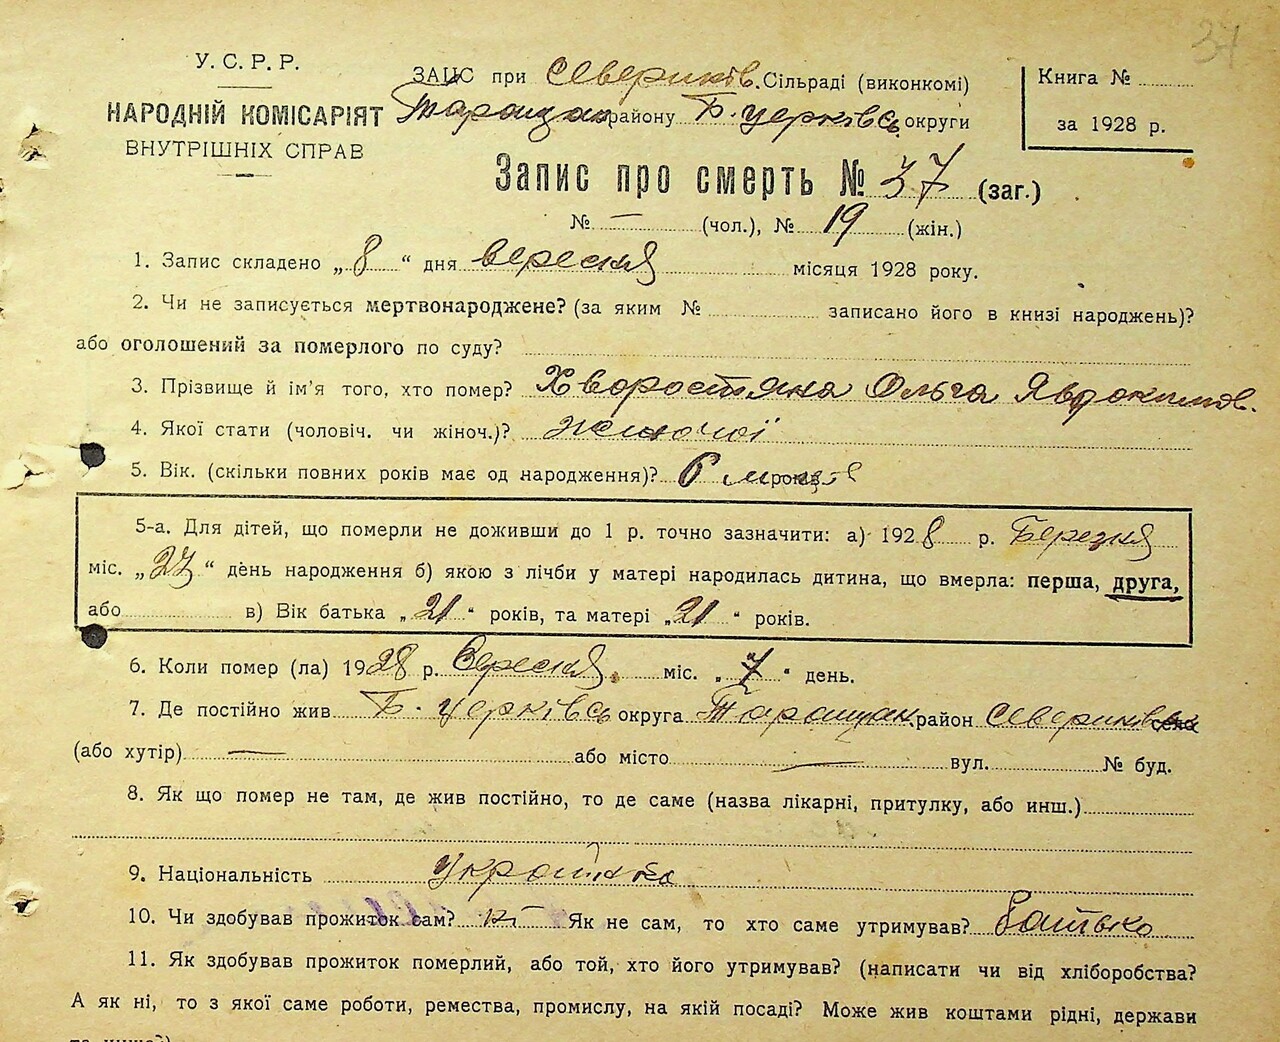 37
У. С. Р. Р.
НАРОДНІЙ КОМІСАРІЯТ
ВНУТРІШНІХ СПРАВ
ЗАЦС при Севериків. Сільраді (виконкомі)
Таращан району Б. Церківсь округи
Книга №
за 1928 р.
Запис про смерть № 37 (заг.)
№ — (чол.), № 19 (жін.)
1. Запис складено „8“ дня вересня місяця 1928 року.
2. Чи не записується мертвонароджене? (за яким № записано його в книзі народжень)?
або оголошений за померлого по суду?
3. Прізвище й ім'я того, хто помер? Хворостяна Ольга Явдокимов.
4. Якої стати (чоловіч. чи жіноч.)? жіночої
5. Вік. (скільки повних років має од народження)? 6 років
5-а. Для дітей, що померли не доживши до 1 р. точно зазначити: а) 1928 р. Березня
міс. „27“ день народження б) якою з лічби у матері народилась дитина, що вмерла: перша, друга,
або в) Вік батька „21“ років, та матері „21“ років.
6. Коли помер (ла) 1928 р. Вересня міс. „7“ день.
7. Де постійно жив Б. Церківсь округа Таращан район Севериків село
(або хутір) — або місто — вул. № буд.
8. Як що помер не там, де жив постійно, то де саме (назва лікарні, притулку, або инш.)
9. Національність Українка
10. Чи здобував прожиток сам? ні Як не сам, то хто саме утримував? Батько
11. Як здобував прожиток померлий, або той, хто його утримував? (написати чи від хліборобства?
А як ні, то з якої саме роботи, ремества, промислу, на якій посаді? Може жив коштами рідні, держави